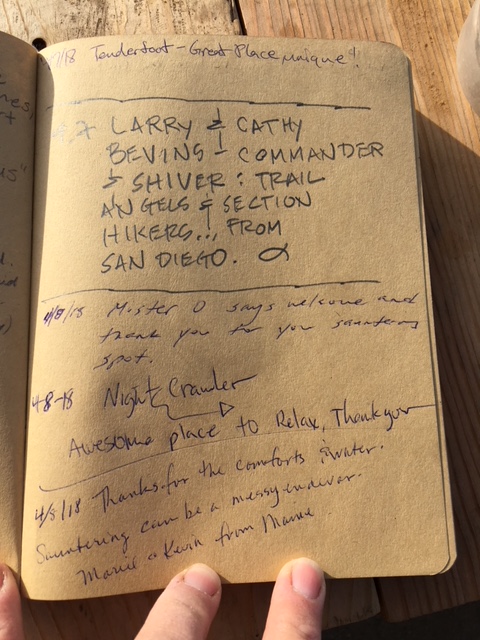 /18 Tenderfoot - Great Place unique!
4.7 LARRY & CATHY
BEVINS - COMMANDER
& SHIVER : TRAIL
ANGELS & SECTION
HIKERS... FROM
SAN DIEGO.
4/8/18 Mister O says welcome and
thank you for you sauntering
spot.
4-8-18 Night Crawler
Awesome place to Relax, Thank you
4/8/18 Thanks for the comforts & water.
Sauntering can be a messy endevor.
Marie & Kevin from Maine